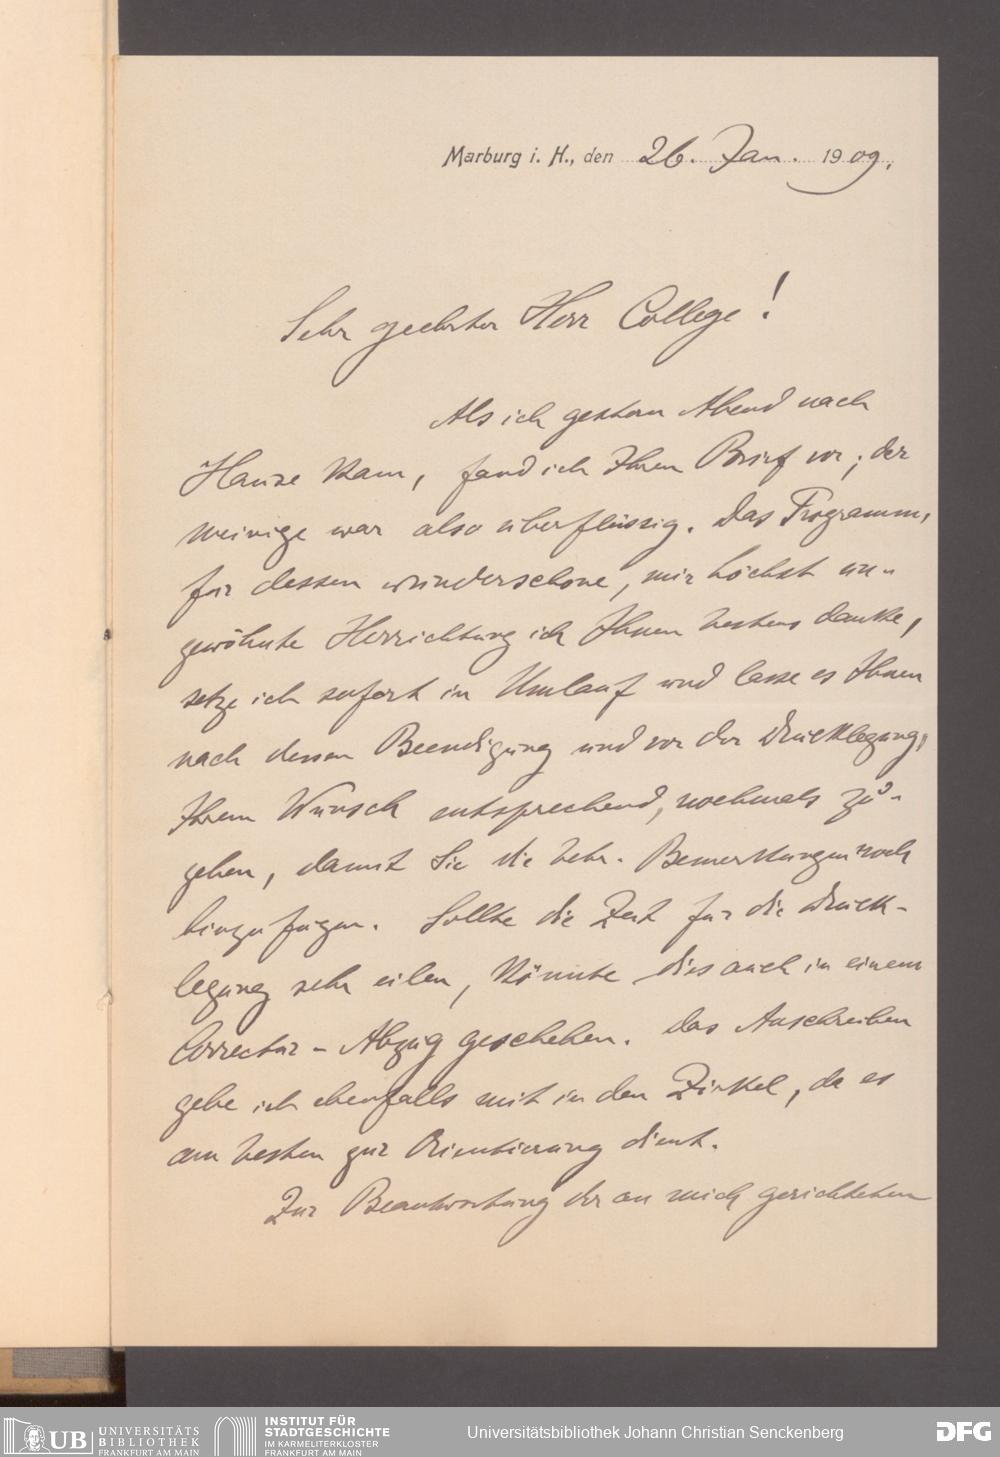 Marburg i. H., den 26. Jan. 1909.
Sehr geehrter Herr College!
Als ich gestern Abend nach
Hause kam, fand ich Ihren Brief vor; der
meinige war also überflüssig. Das Programm,
für dessen wunderschöne, mir höchst un-
gewöhnte Herrichtung ich Ihnen bestens danke,
setze ich sofort in Umlauf und lasse es Ihnen
nach dessen Beendigung und vor der Drucklegung,
Ihrem Wunsch entsprechend, nochmals zu-
gehen, damit Sie die betr. Bemerkungen noch
hinzufügen. Sollte die Zeit für die Druck-
legung sehr eilen, könnte dies auch in einem
Correctur-Abzug geschehen. Das Anschreiben
gebe ich ebenfalls mit in den Zirkel, da es
am besten zur Orientierung dient.
Zur Beantwortung der an mich gerichteten
UB UNIVERSITÄTS
BIBLIOTHEK
FRANKFURT AM MAIN
INSTITUT FÜR
STADTGESCHICHTE
IM KARMELITERKLOSTER
FRANKFURT AM MAIN
Universitätsbibliothek Johann Christian Senckenberg
DFG